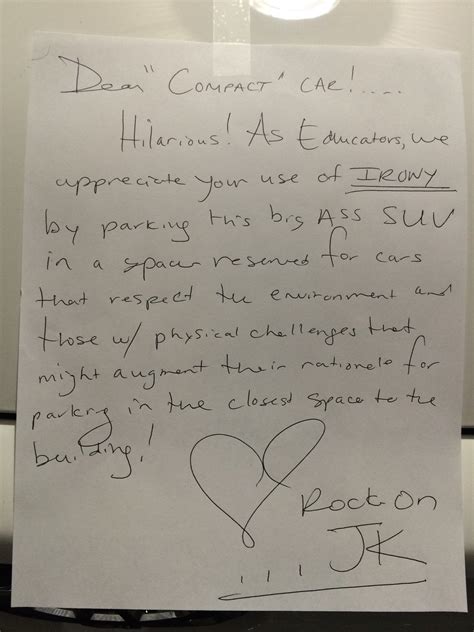 Dear "COMPACT" CAR!....
Hilarious! As Educators, we
appreciate your use of IRONY
by parking this big Ass SUV
in a space reserved for cars
that respect the environment and
those w/ physical challenges that
might augment their rationale for
parking in the closest space to the
building!
Rock On
... JK